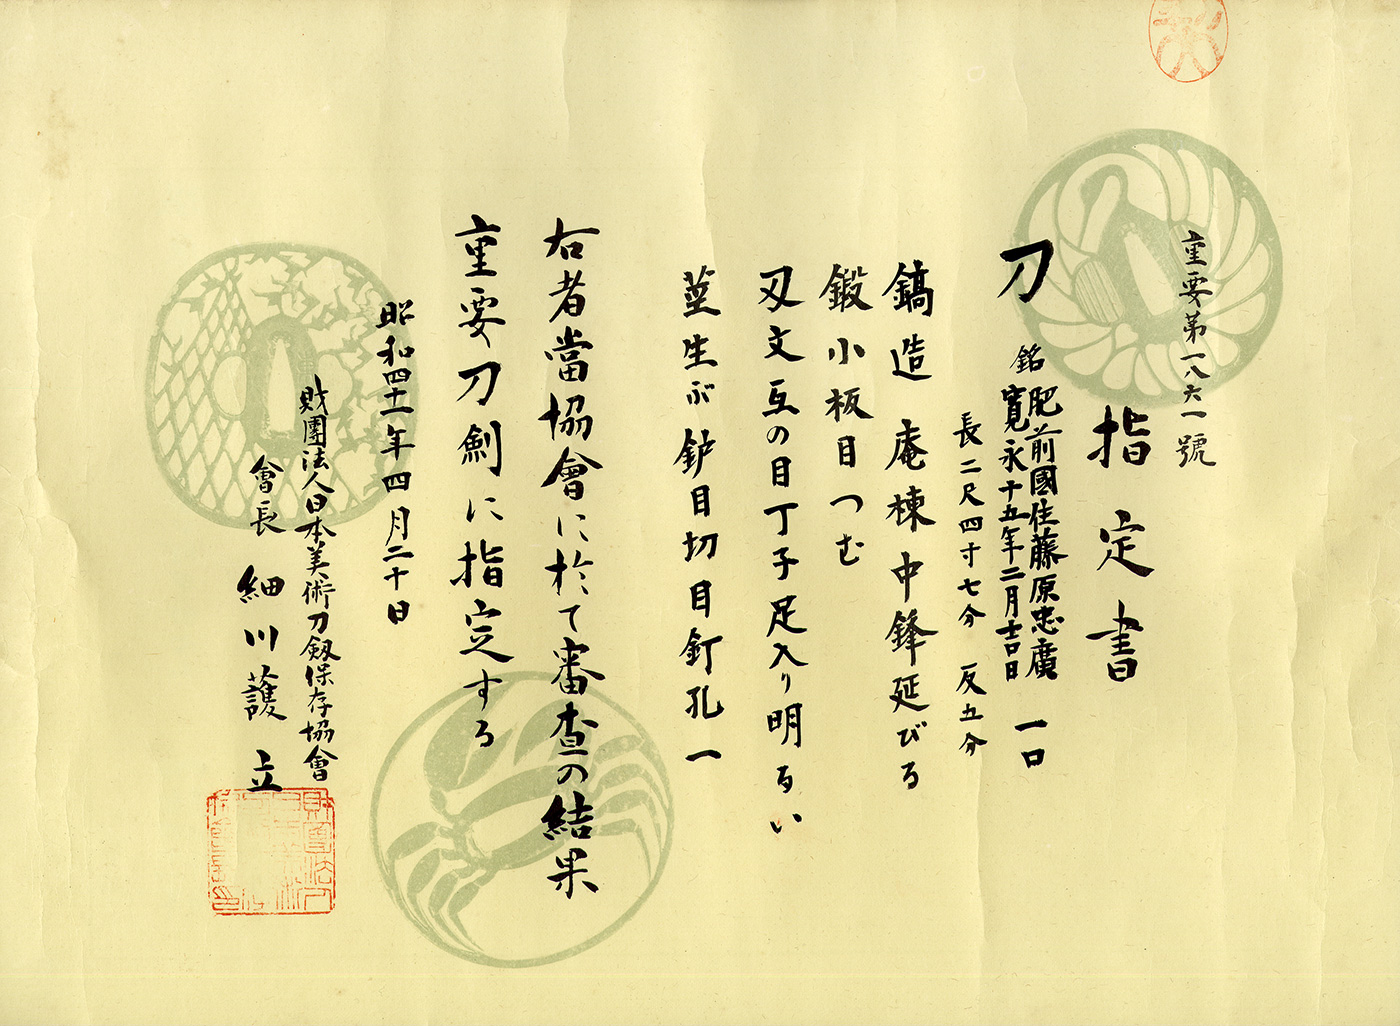 重要第一八六一號
指定書
刀 銘 肥前國住藤原忠廣 一口
寛永十五年二月吉日
長二尺四寸七分 反五分
鎬造 庵棟 中鋒延びる
鍛小板目つむ
刃文互の目丁子足入り明るい
茎生ぶ鈩目切目釘孔一
右者當協會に於て審査の結果
重要刀劍に指定する
昭和四十一年四月二十日
財團法人日本美術刀劔保存協會
會長 細川護立